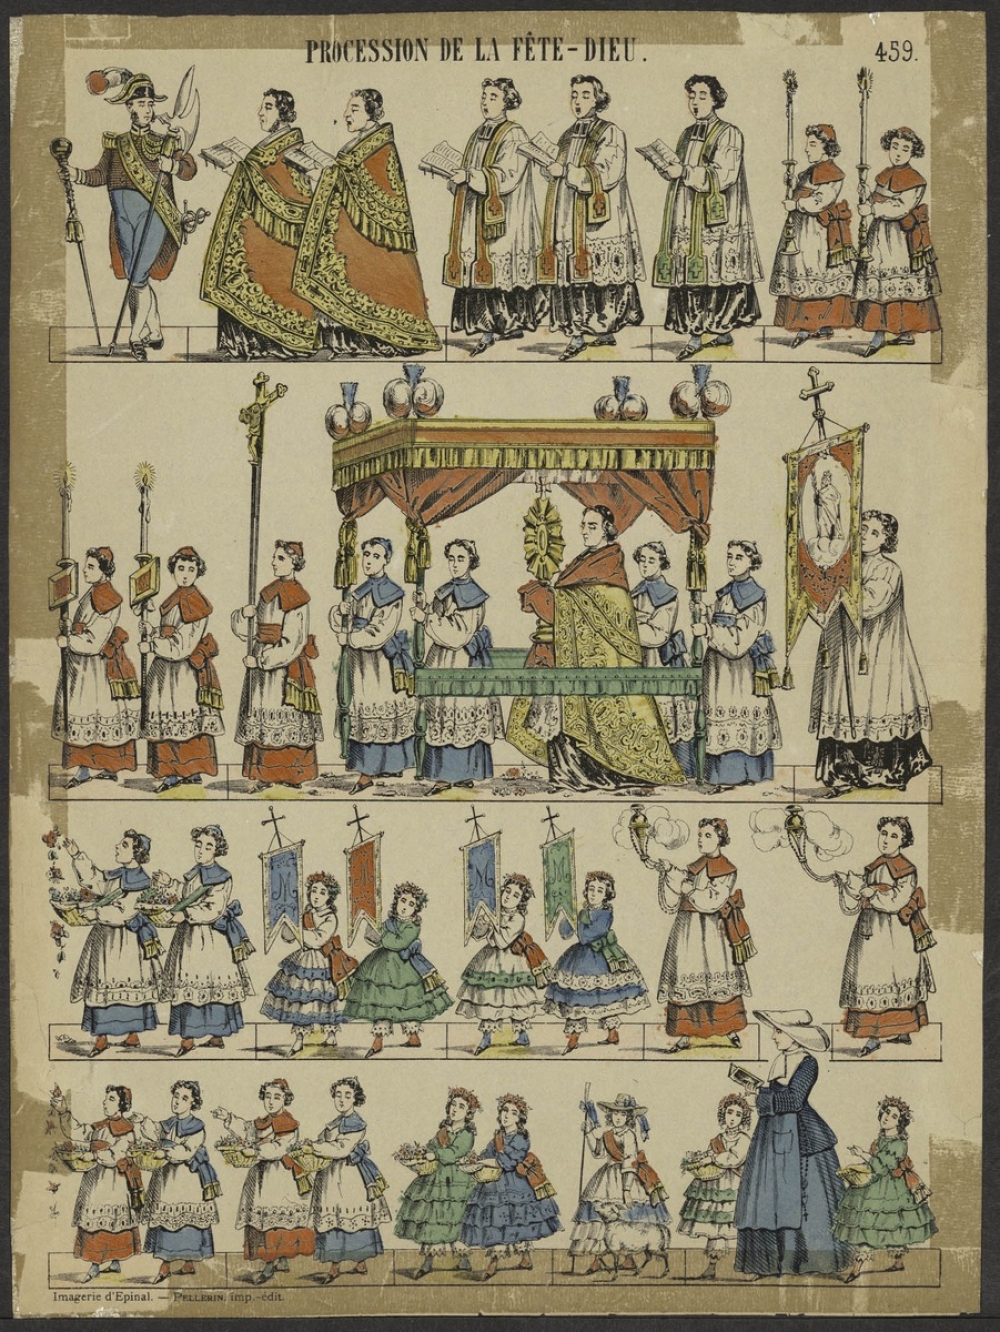 PROCESSION DE LA FÊTE-DIEU.
459.
M
M
M
Imagerie d'Epinal. — PELLERIN, imp.-édit.